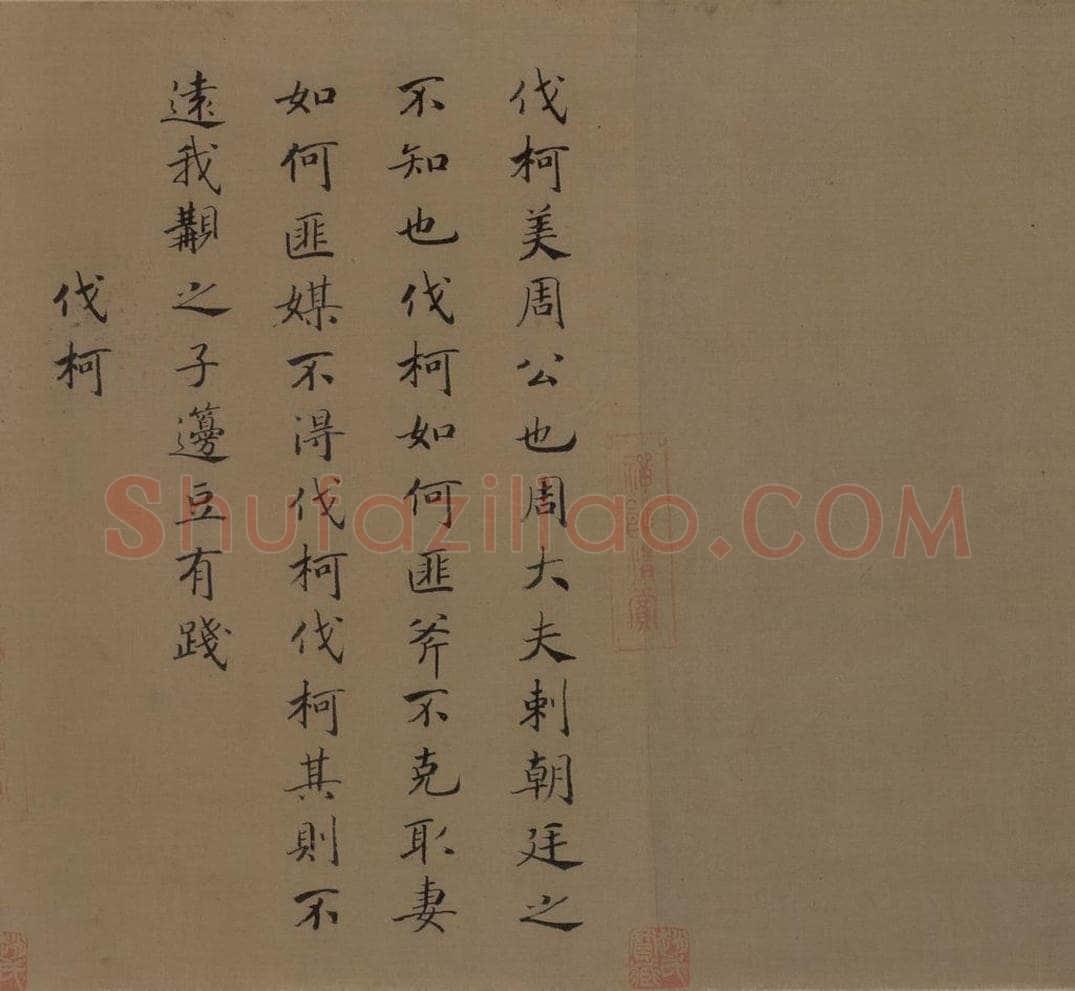 伐柯美周公也周大夫刺朝廷之
不知也伐柯如何匪斧不克取妻
如何匪媒不得伐柯伐柯其則不
遠我覯之子籩豆有踐
伐柯
Shufaziliao.COM